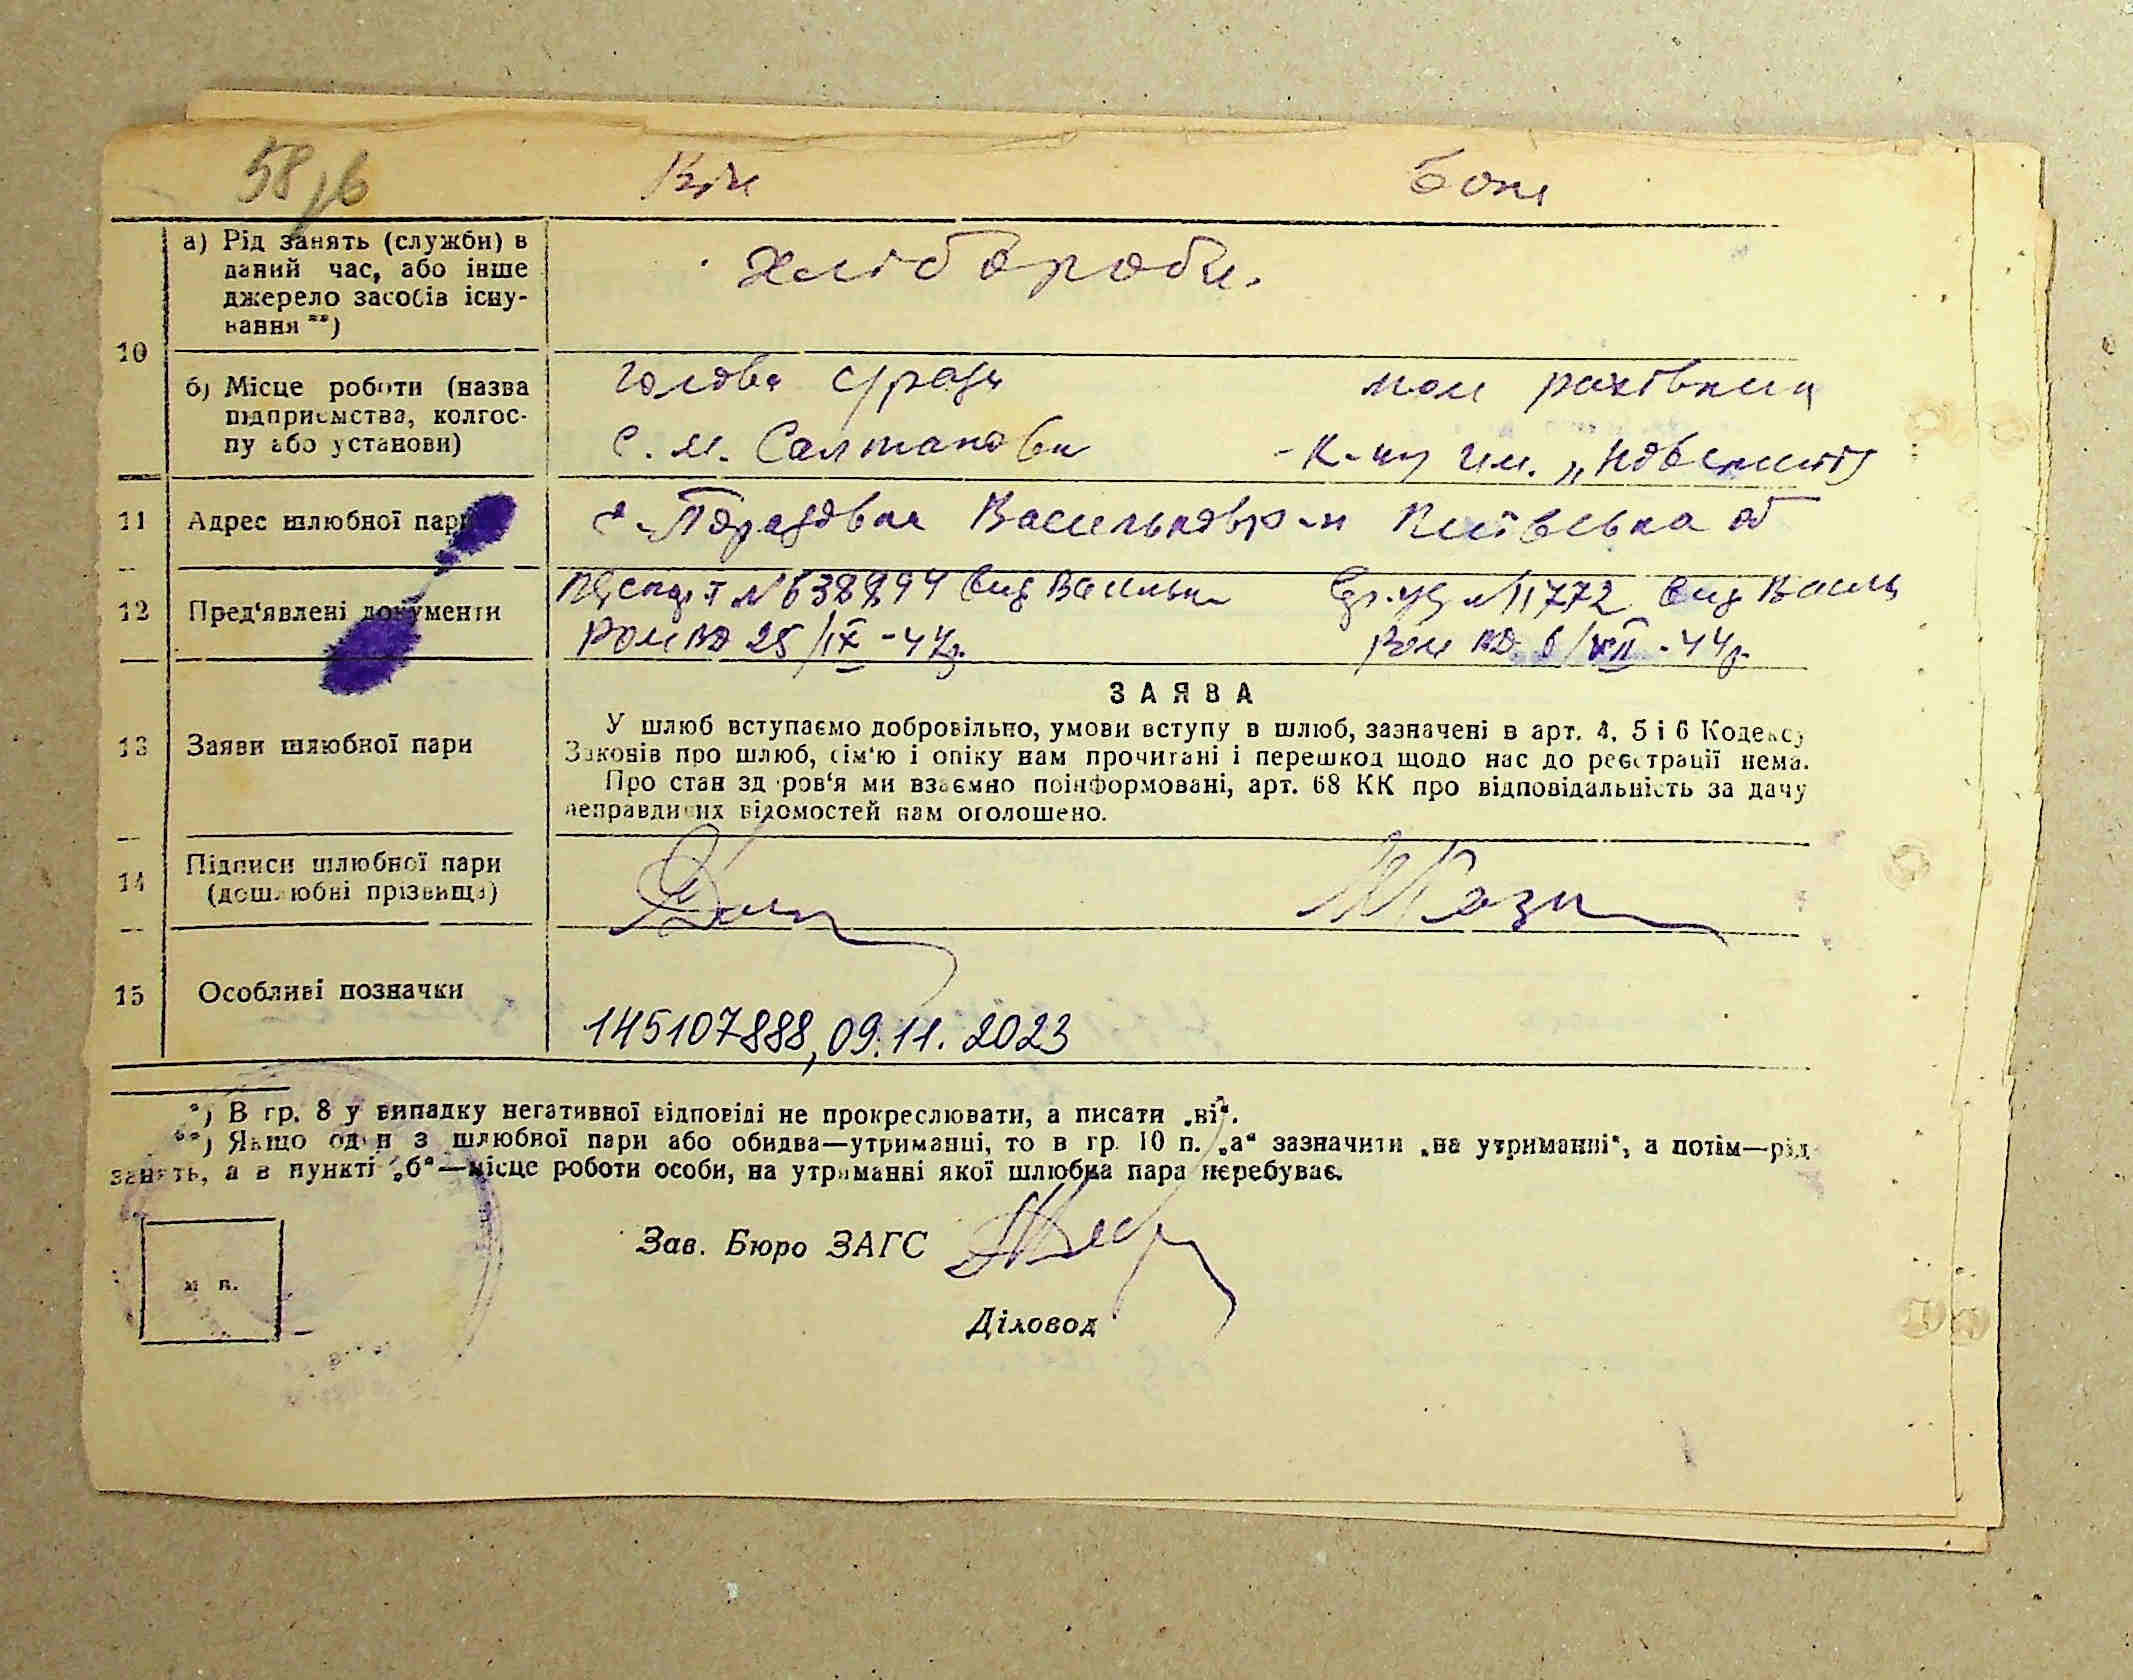 58 зв Він Вона
10 а) Рід занять (служби) в
даний час, або інше
джерело засобів існу-
вання **)
хлібороби.
б) Місце роботи (назва
підприємства, колгос-
пу або установи)
голова с/ради
С. М. Салтановки
пом рахівниц
К-пу им.
11 Адрес шлюбної пари
Васильков р-н Київська об
12 Пред'явлені документи
Паспорт № 638994 вид Васильк
РОМ ВД 25/IX-44р.
№ 11772 вид Василь
Ром ВД 6/XII-44р.
13 Заяви шлюбної пари
ЗАЯВА
У шлюб вступаємо добровільно, умови вступу в шлюб, зазначені в арт. 4, 5 і 6 Кодексу
Законів про шлюб, сім'ю і опіку нам прочитані і перешкод щодо нас до реєстрації нема.
Про стан здоров'я ми взаємно поінформовані, арт. 68 КК про відповідальність за дачу
неправдивих відомостей нам оголошено.
14 Підписи шлюбної пари
(дошлюбні прізвища)
15 Особливі позначки
145107888, 09.11.2023
*) В гр. 8 у випадку негативної відповіді не прокреслювати, а писати „ні“.
**) Якщо один з шлюбної пари або обидва—утриманці, то в гр. 10 п. „а“ зазначити „на утриманні“, а потім—рід
занять, а в пункті „б“—місце роботи особи, на утриманні якої шлюбна пара перебуває.
Зав. Бюро ЗАГС
м. п.
Діловод